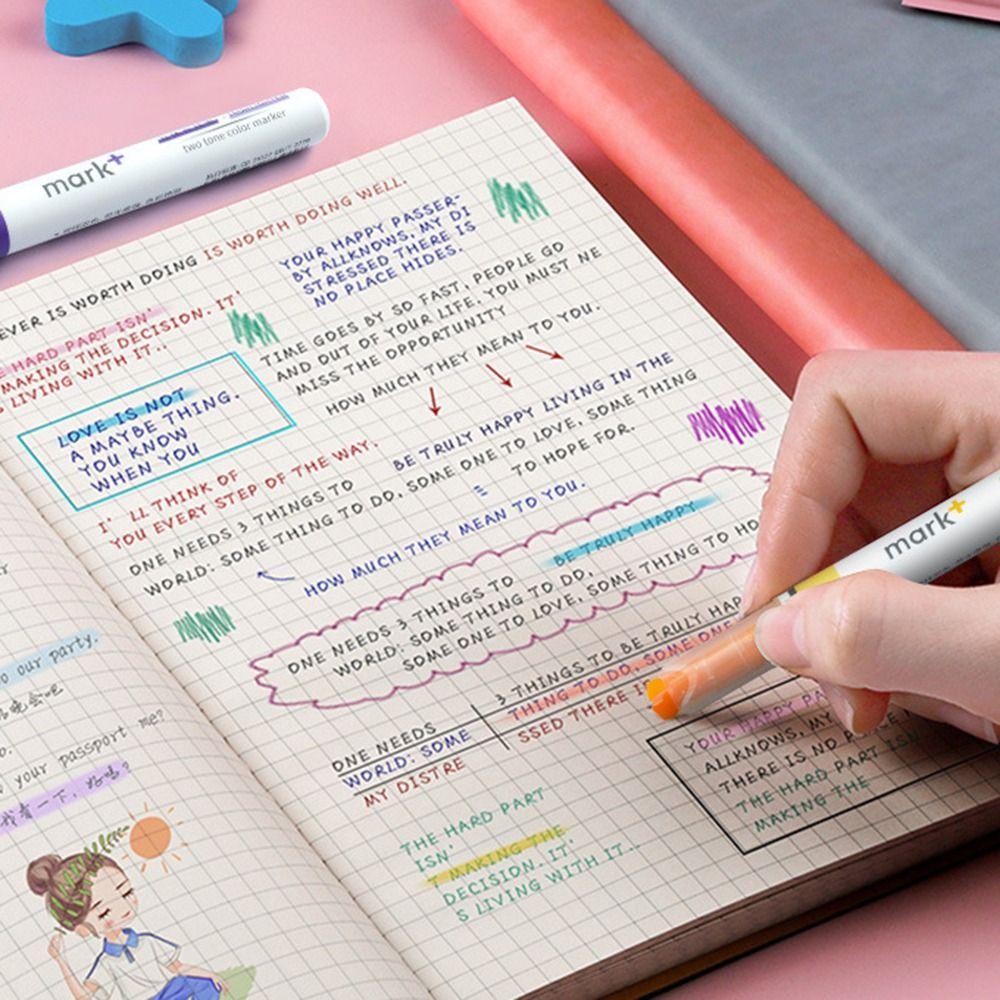 mark+
two tone color marker
EVER IS WORTH DOING IS WORTH DOING WELL.
E HARD PART ISN'
MAKING THE DECISION. IT'
S LIVING WITH IT..
YOUR HAPPY PASSER-
BY ALLKNOWS, MY DI
STRESSED THERE IS
NO PLACE HIDES.
TIME GOES BY SO FAST, PEOPLE GO
AND OUT OF YOUR LIFE. YOU MUST NE
MISS THE OPPORTUNITY
HOW MUCH THEY MEAN TO YOU.
LOVE IS NOT
A MAYBE THING.
YOU KNOW
WHEN YOU
I' LL THINK OF
YOU EVERY STEP OF THE WAY.
BE TRULY HAPPY LIVING IN THE
ONE NEEDS 3 THINGS TO
WORLD: SOME THING TO DO, SOME ONE TO LOVE, SOME THING
TO HOPE FOR.
=
HOW MUCH THEY MEAN TO YOU.
BE TRULY HAPPY
ONE NEEDS 3 THINGS TO
WORLD: SOME THING TO DO,
SOME ONE TO LOVE, SOME THING TO HO
mark+
3 THINGS TO BE TRULY HAP
ONE NEEDS
THING TO DO, SOME ONE
WORLD: SOME
SSED THERE I
MY DISTRE
YOUR HAPPY PA
ALLKNOWS, MY
THERE IS NO
THE HARD PART ISN
MAKING THE
THE HARD PART
ISN'
T MAKING THE
DECISION. IT'
S LIVING WITH IT..
o our party.
晚会吧
your passport me?
我看一下，好吗？